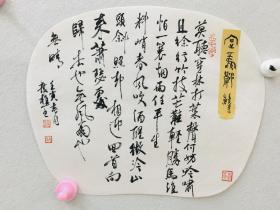 莫聽穿林打葉聲何妨吟嘯
且徐行竹杖芒鞋輕勝馬誰
怕一蓑煙雨任平生
料峭春風吹酒醒微冷山
頭斜照却相迎回首向
來蕭瑟處
歸去也無風雨也
無晴